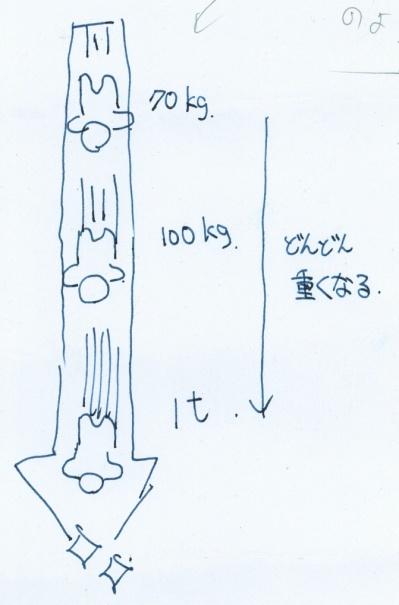 のよ
70kg.
100kg.
どんどん
重くなる.
1t.